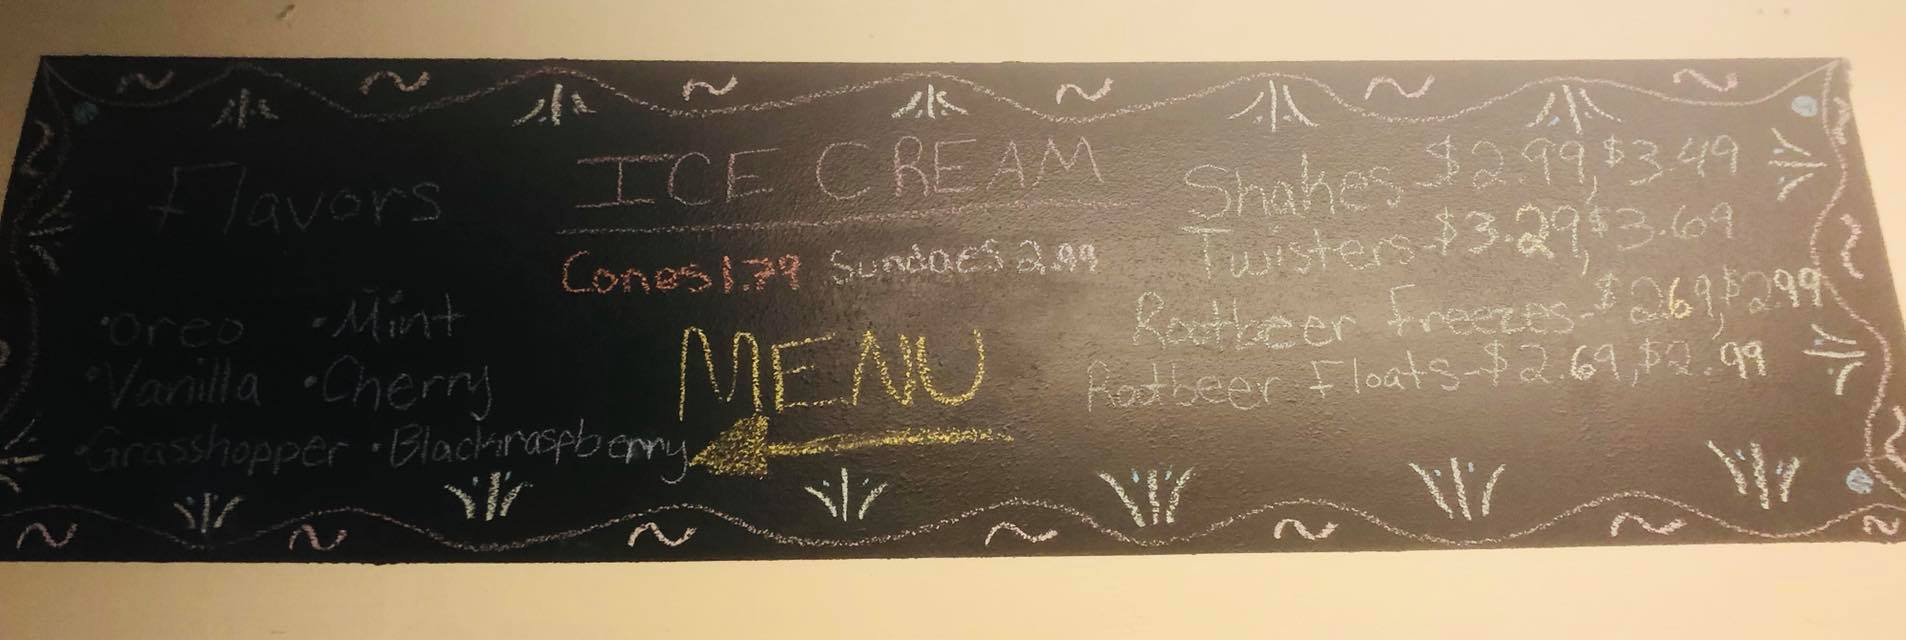 Flavors
•Oreo •Mint
•Vanilla •Cherry
•Grasshopper •Blackraspberry
ICE CREAM
Cones 1.79 Sundaes 2.99
MENU
Shakes $2.99, $3.49
Twisters $3.29, $3.69
Rootbeer Freezes-$269, $299
Rootbeer Floats-$2.69, $2.99